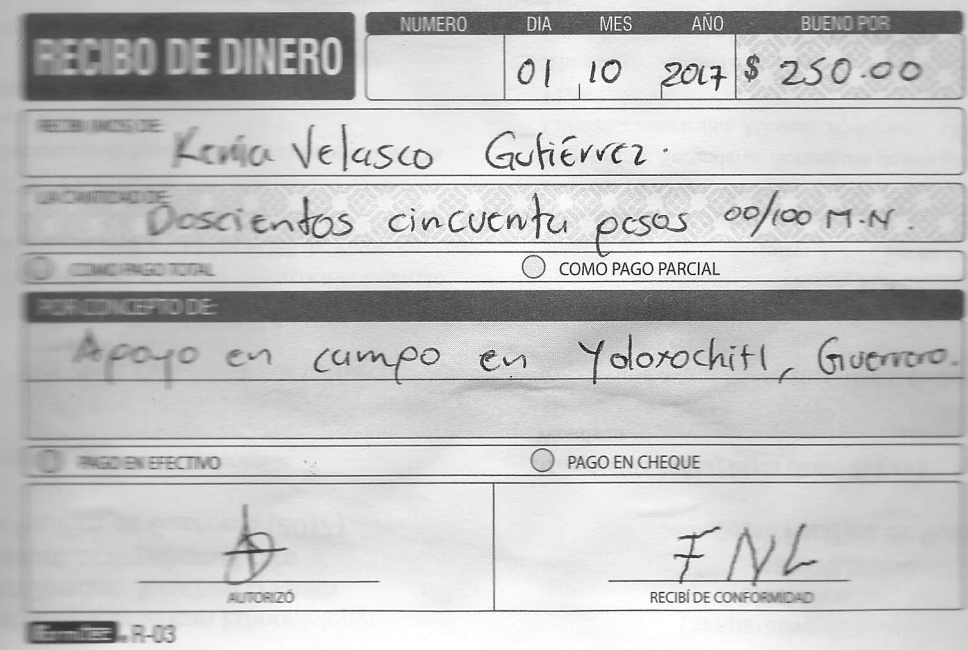 RECIBO DE DINERO
NUMERO DIA MES AÑO BUENO POR
01 10 2017 $ 250.00
RECIBIMOS DE:
Kenia Velasco Gutiérrez.
LA CANTIDAD DE:
Doscientos cincuenta pesos 00/100 M.N.
COMO PAGO TOTAL COMO PAGO PARCIAL
POR CONCEPTO DE:
Apoyo en campo en Yoloxochitl, Guerrero.
PAGO EN EFECTIVO PAGO EN CHEQUE
FNL
AUTORIZÓ RECIBÍ DE CONFORMIDAD
R-03